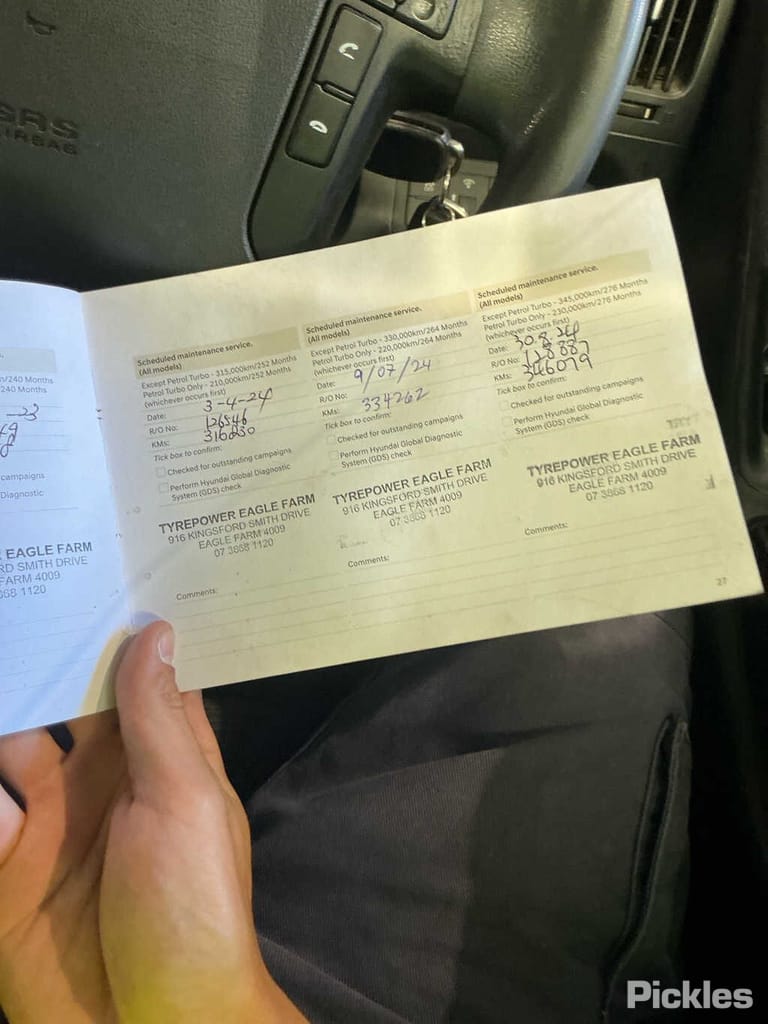 SRS
AIRBAG
m/240 Months
240 Months
-23
campaigns
Diagnostic
EAGLE FARM
RD SMITH DRIVE
FARM 4009
868 1120
Scheduled maintenance service.
(All models)
Except Petrol Turbo - 315,000km/252 Months
Petrol Turbo Only - 210,000km/252 Months
(whichever occurs first)
Date: 3-4-24
R/O No: 126546
KMs: 316230
Tick box to confirm:
Checked for outstanding campaigns
Perform Hyundai Global Diagnostic
System (GDS) check
TYREPOWER EAGLE FARM
916 KINGSFORD SMITH DRIVE
EAGLE FARM 4009
07 3868 1120
Comments:
Scheduled maintenance service.
(All models)
Except Petrol Turbo - 330,000km/264 Months
Petrol Turbo Only - 220,000km/264 Months
(whichever occurs first)
Date: 9/07/24
R/O No:
KMs: 334262
Tick box to confirm:
Checked for outstanding campaigns
Perform Hyundai Global Diagnostic
System (GDS) check
TYREPOWER EAGLE FARM
916 KINGSFORD SMITH DRIVE
EAGLE FARM 4009
07 3868 1120
Comments:
Scheduled maintenance service.
(All models)
Except Petrol Turbo - 345,000km/276 Months
Petrol Turbo Only - 230,000km/276 Months
(whichever occurs first)
Date: 30.8.24
R/O No: 128887
KMs: 346079
Tick box to confirm:
Checked for outstanding campaigns
Perform Hyundai Global Diagnostic
System (GDS) check
TYREPOWER EAGLE FARM
916 KINGSFORD SMITH DRIVE
EAGLE FARM 4009
07 3868 1120
Comments:
27
Pickles